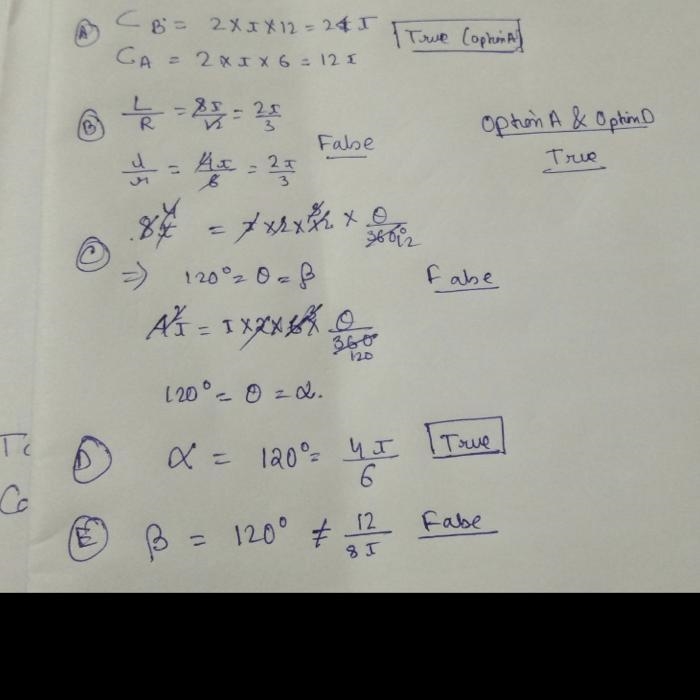 A C_B = 2 × π × 12 = 24 π True (option A)
C_A = 2 × π × 6 = 12 π
B L/R = 8π/12 = 2π/3
False
l/r = 4π/6 = 2π/3
Option A & Option D
True
C 8π = π × 2 × 12 × θ/360° 12
⇒ 120° = θ = β False
4π = π × 2 × 6 × θ/360 120
120° = θ = α.
D α = 120° = 4π/6 True
E β = 120° ≠ 12/8π False